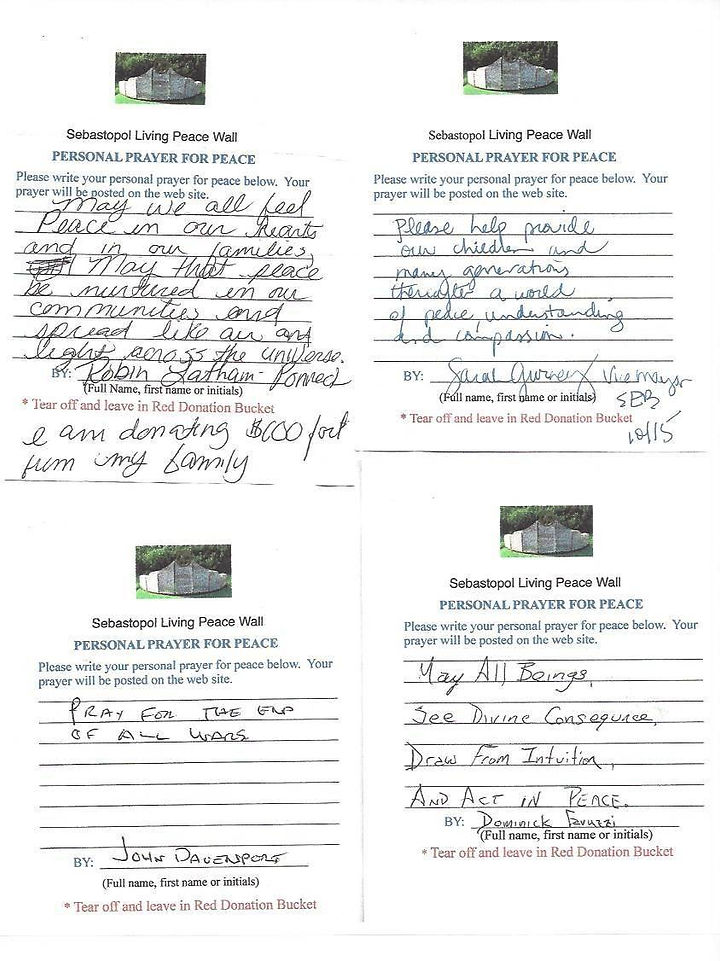 Sebastopol Living Peace Wall
PERSONAL PRAYER FOR PEACE
Please write your personal prayer for peace below. Your
prayer will be posted on the web site.
May we all feel
Peace in our hearts
and in our families.
May that peace
be nurtured in our
communities and
spread like air and
light across the universe.
BY: Robin Latham-Ponneck
(Full Name, first name or initials)
* Tear off and leave in Red Donation Bucket
I am donating
from my family
Sebastopol Living Peace Wall
PERSONAL PRAYER FOR PEACE
Please write your personal prayer for peace below. Your
prayer will be posted on the web site.
Please help provide
our children and
many generations
thereafter a world
of peace, understanding
and compassion.
BY: Sarah Gurney Vice Mayor
(Full name, first name or initials) SEB
* Tear off and leave in Red Donation Bucket
10/15
Sebastopol Living Peace Wall
PERSONAL PRAYER FOR PEACE
Please write your personal prayer for peace below. Your
prayer will be posted on the web site.
PRAY FOR THE END
OF ALL WARS
BY: JOHN DAVENPORT
(Full name, first name or initials)
* Tear off and leave in Red Donation Bucket
Sebastopol Living Peace Wall
PERSONAL PRAYER FOR PEACE
Please write your personal prayer for peace below. Your
prayer will be posted on the web site.
May All Beings,
See Divine Consequnce,
Draw From Intuition,
AND ACT IN PEACE.
BY: Dominick
(Full name, first name or initials)
* Tear off and leave in Red Donation Bucket